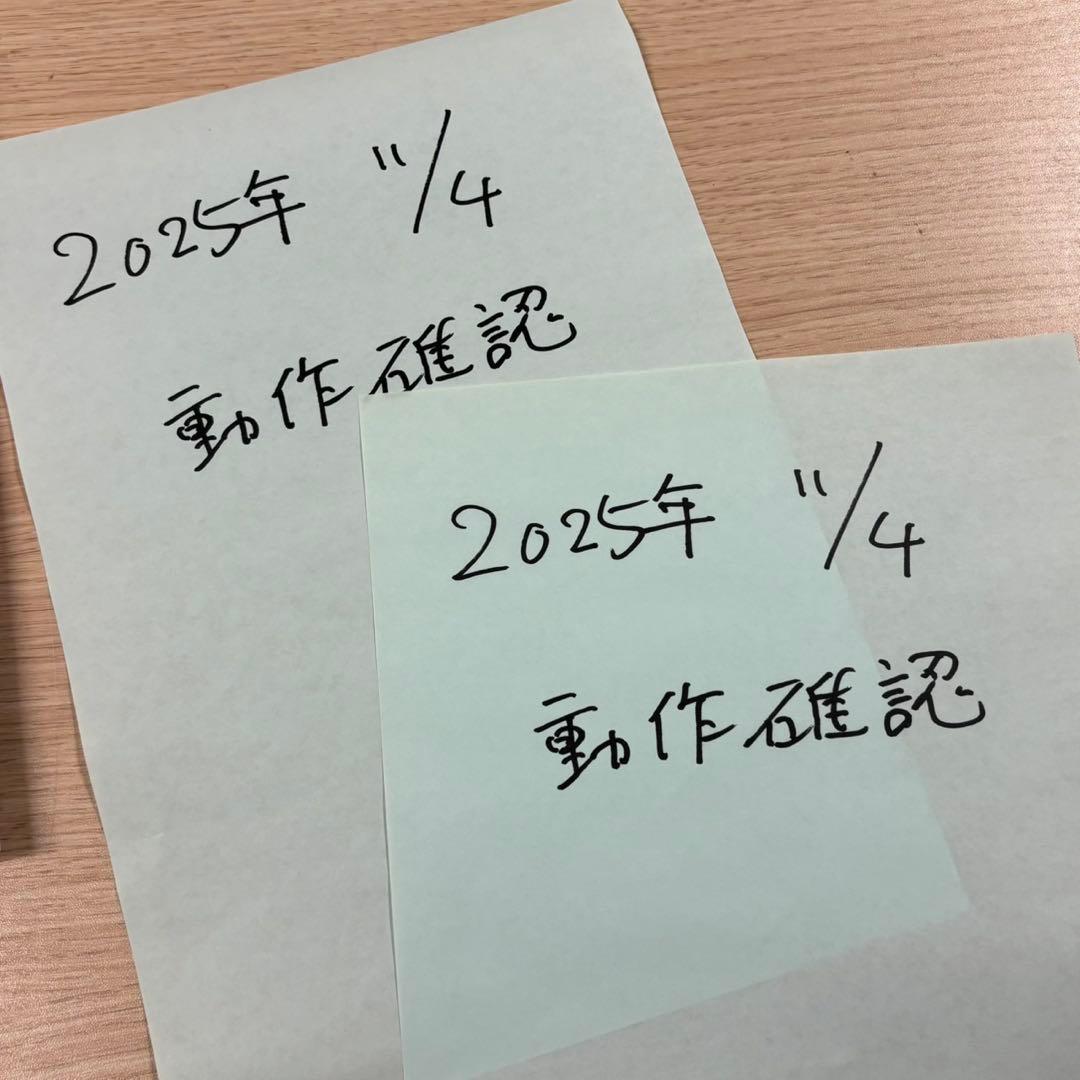 2025年 11/4
動作確認
2025年 11/4
動作確認